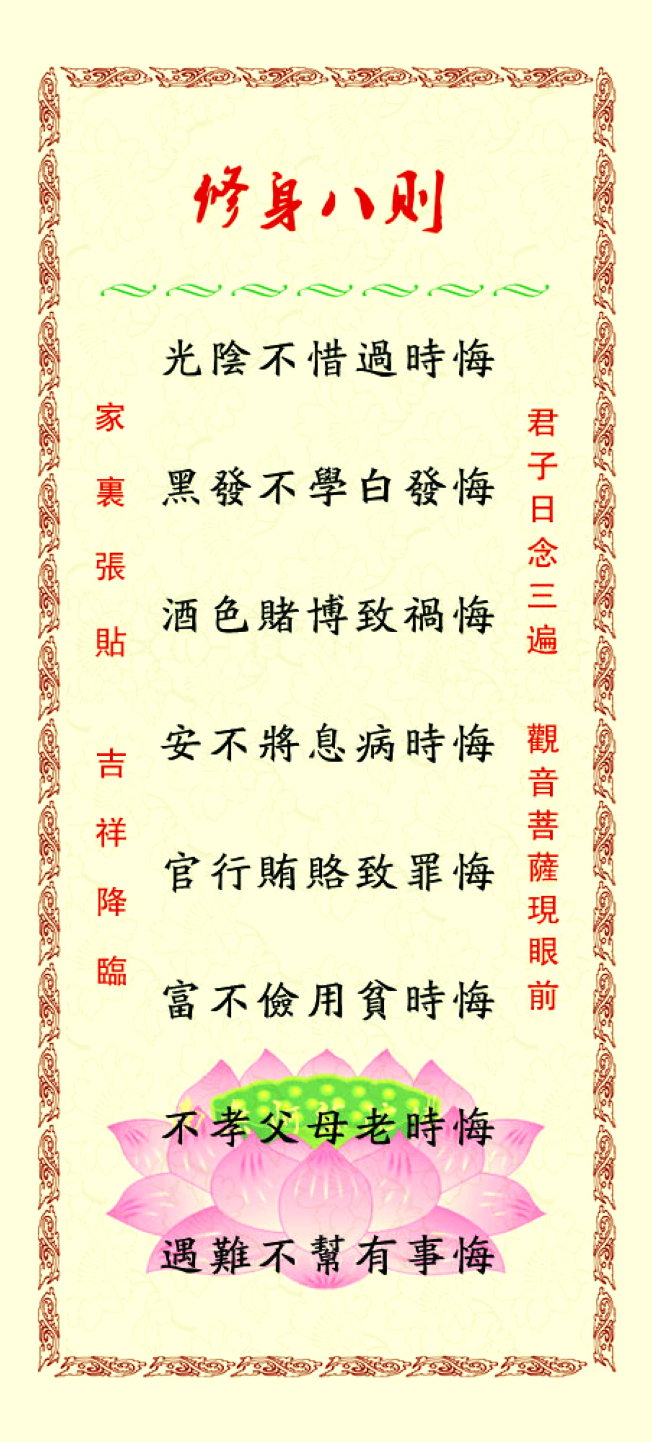 修身八则
君子日念三遍 觀音菩薩現眼前
光陰不惜過時悔
黑發不學白發悔
酒色賭博致禍悔
安不將息病時悔
官行賄賂致罪悔
富不儉用貧時悔
不孝父母老時悔
遇難不幫有事悔
家裏張貼 吉祥降臨